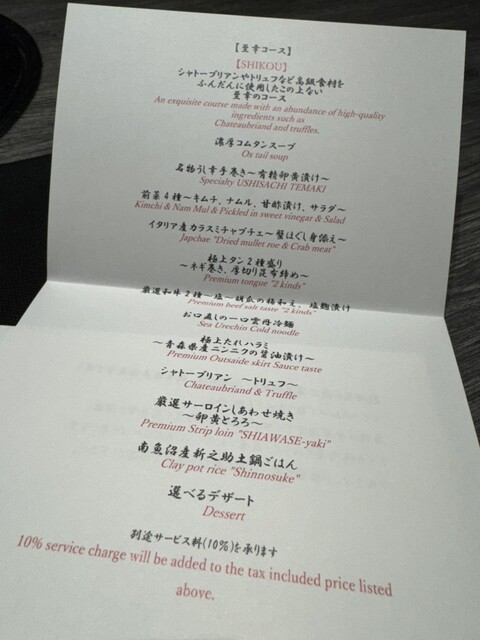 【至幸コース】
【SHIKOU】
シャトーブリアンやトリュフなど高級食材を
ふんだんに使用したこの上ない
至幸のコース
An exquisite course made with an abundance of high-quality
ingredients such as
Chateaubriand and truffles.
濃厚コムタンスープ
Ox tail soup
名物うし幸手巻き〜有精卵黄漬け〜
Specialty USHISACHI TEMAKI
前菜4種〜キムチ、ナムル、甘酢漬け、サラダ〜
Kimchi & Nam Mul & Pickled in sweet vinegar & Salad
イタリア産カラスミチャプチェ〜蟹ほぐし身添え〜
Japchae "Dried mullet roe & Crab meat"
極上タン2種盛り
〜ネギ巻き、厚切り昆布締め〜
Premium tongue "2 kinds"
厳選和牛2種〜塩〜胡瓜の梅和え、塩麹漬け
Premium beef salt taste "2 kinds"
お口直しの一口雲丹冷麺
Sea Urechin Cold noodle
極上たれハラミ
〜青森県産ニンニクの醤油漬け〜
Premium Outsaide skirt Sauce taste
シャトーブリアン 〜トリュフ〜
Chateaubriand & Truffle
厳選サーロインしあわせ焼き
〜卵黄とろろ〜
Premium Strip loin "SHIAWASE-yaki"
南魚沼産新之助土鍋ごはん
Clay pot rice "Shinnosuke"
選べるデザート
Dessert
別途サービス料(10%)を承ります
10% service charge will be added to the tax included price listed
above.